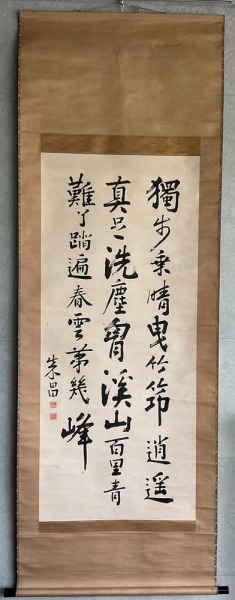 獨步乗晴曳竹筇逍遥
真足洗塵胷溪山百里青
難了踏遍春雲第幾峰
朱昌